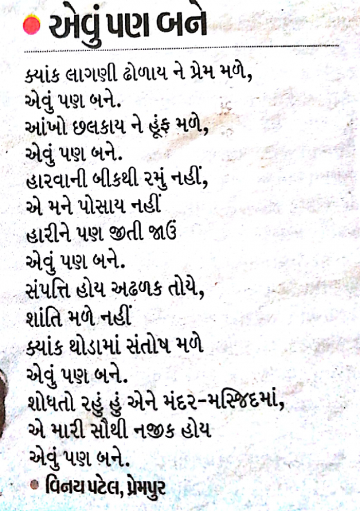 • એવું પણ બને
ક્યાંક લાગણી ઢોળાય ને પ્રેમ મળે,
એવું પણ બને.
આંખો છલકાય ને હૂંફ મળે,
એવું પણ બને.
હારવાની બીકથી રમું નહીં,
એ મને પોસાય નહીં
હારીને પણ જીતી જાઉં
એવું પણ બને.
સંપત્તિ હોય અઢળક તોયે,
શાંતિ મળે નહીં
ક્યાંક થોડામાં સંતોષ મળે
એવું પણ બને.
શોધતો રહું હું એને મંદર-મસ્જિદમાં,
એ મારી સૌથી નજીક હોય
એવું પણ બને.
• વિનય પટેલ, પ્રેમપુર